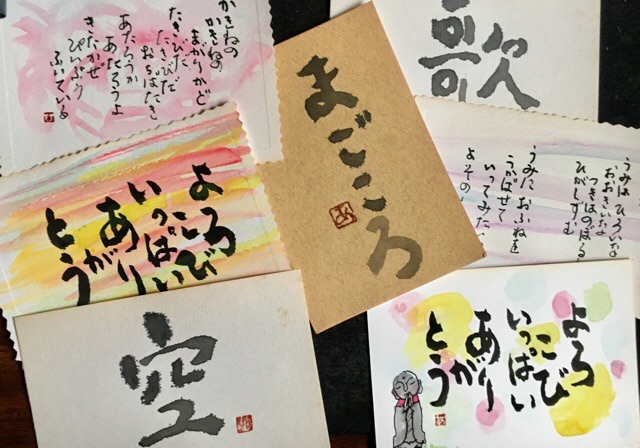 かきねの
かきねの
まがりかど
たきびだ
たきびだ
おちばたき
あたろうか
あたろうよ
きたかぜ
ぴいぷう
ふいている
まごころ
歌
よろ
こび
いっぱい
あり
が
とう
うみはひろいな
おおきいな
つきはのぼる
ひがしずむ
うみにおふねを
うかばせて
いってみたい
よその
空
よろ
こび
いっぱい
あり
が
とう